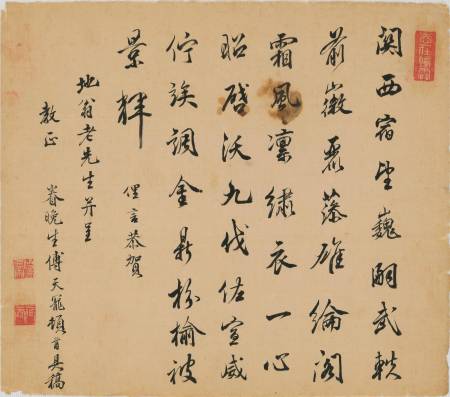 關西宿望巍嗣武軼
前徽磊落雄綸閣
霜風凜繡衣一心
昭啓沃九伐佐宣威
佇俟調金鼎枌榆被
景輝 俚言恭賀
地翁老先生并呈
教正 眷晚生傅天寵頓首具稿